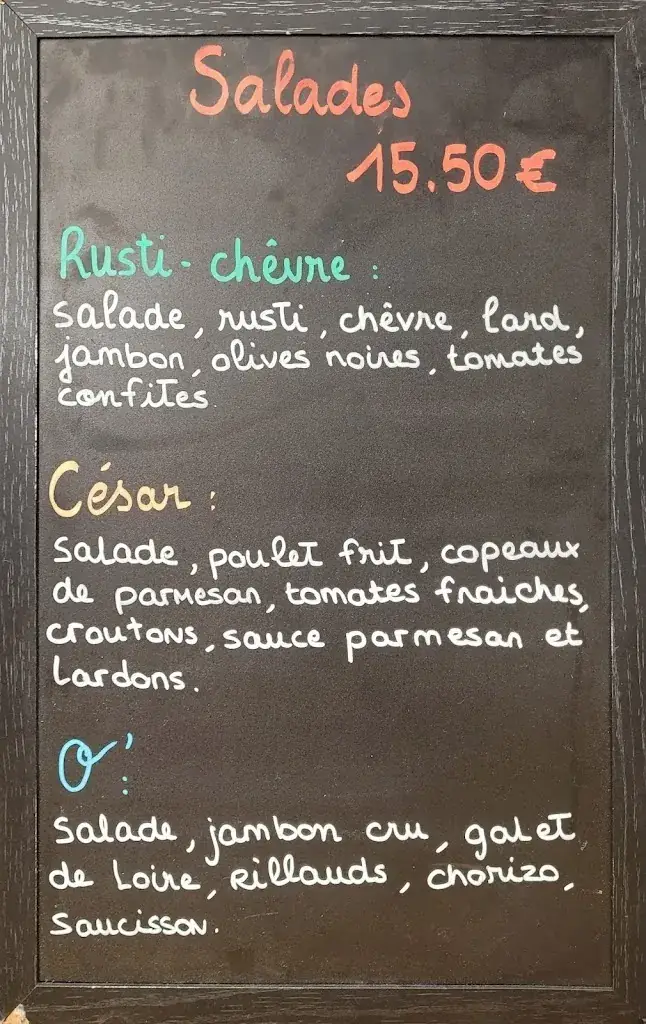 Salades
15.50€
Rusti-chêvre :
Salade, rusti, chêvre, lard,
jambon, olives noires, tomates
confites.
César :
Salade, poulet frit, copeaux
de parmesan, tomates fraiches,
croutons, sauce parmesan et
Lardons.
O' :
Salade, jambon cru, galet
de Loire, Rillauds, chorizo,
Saucisson.